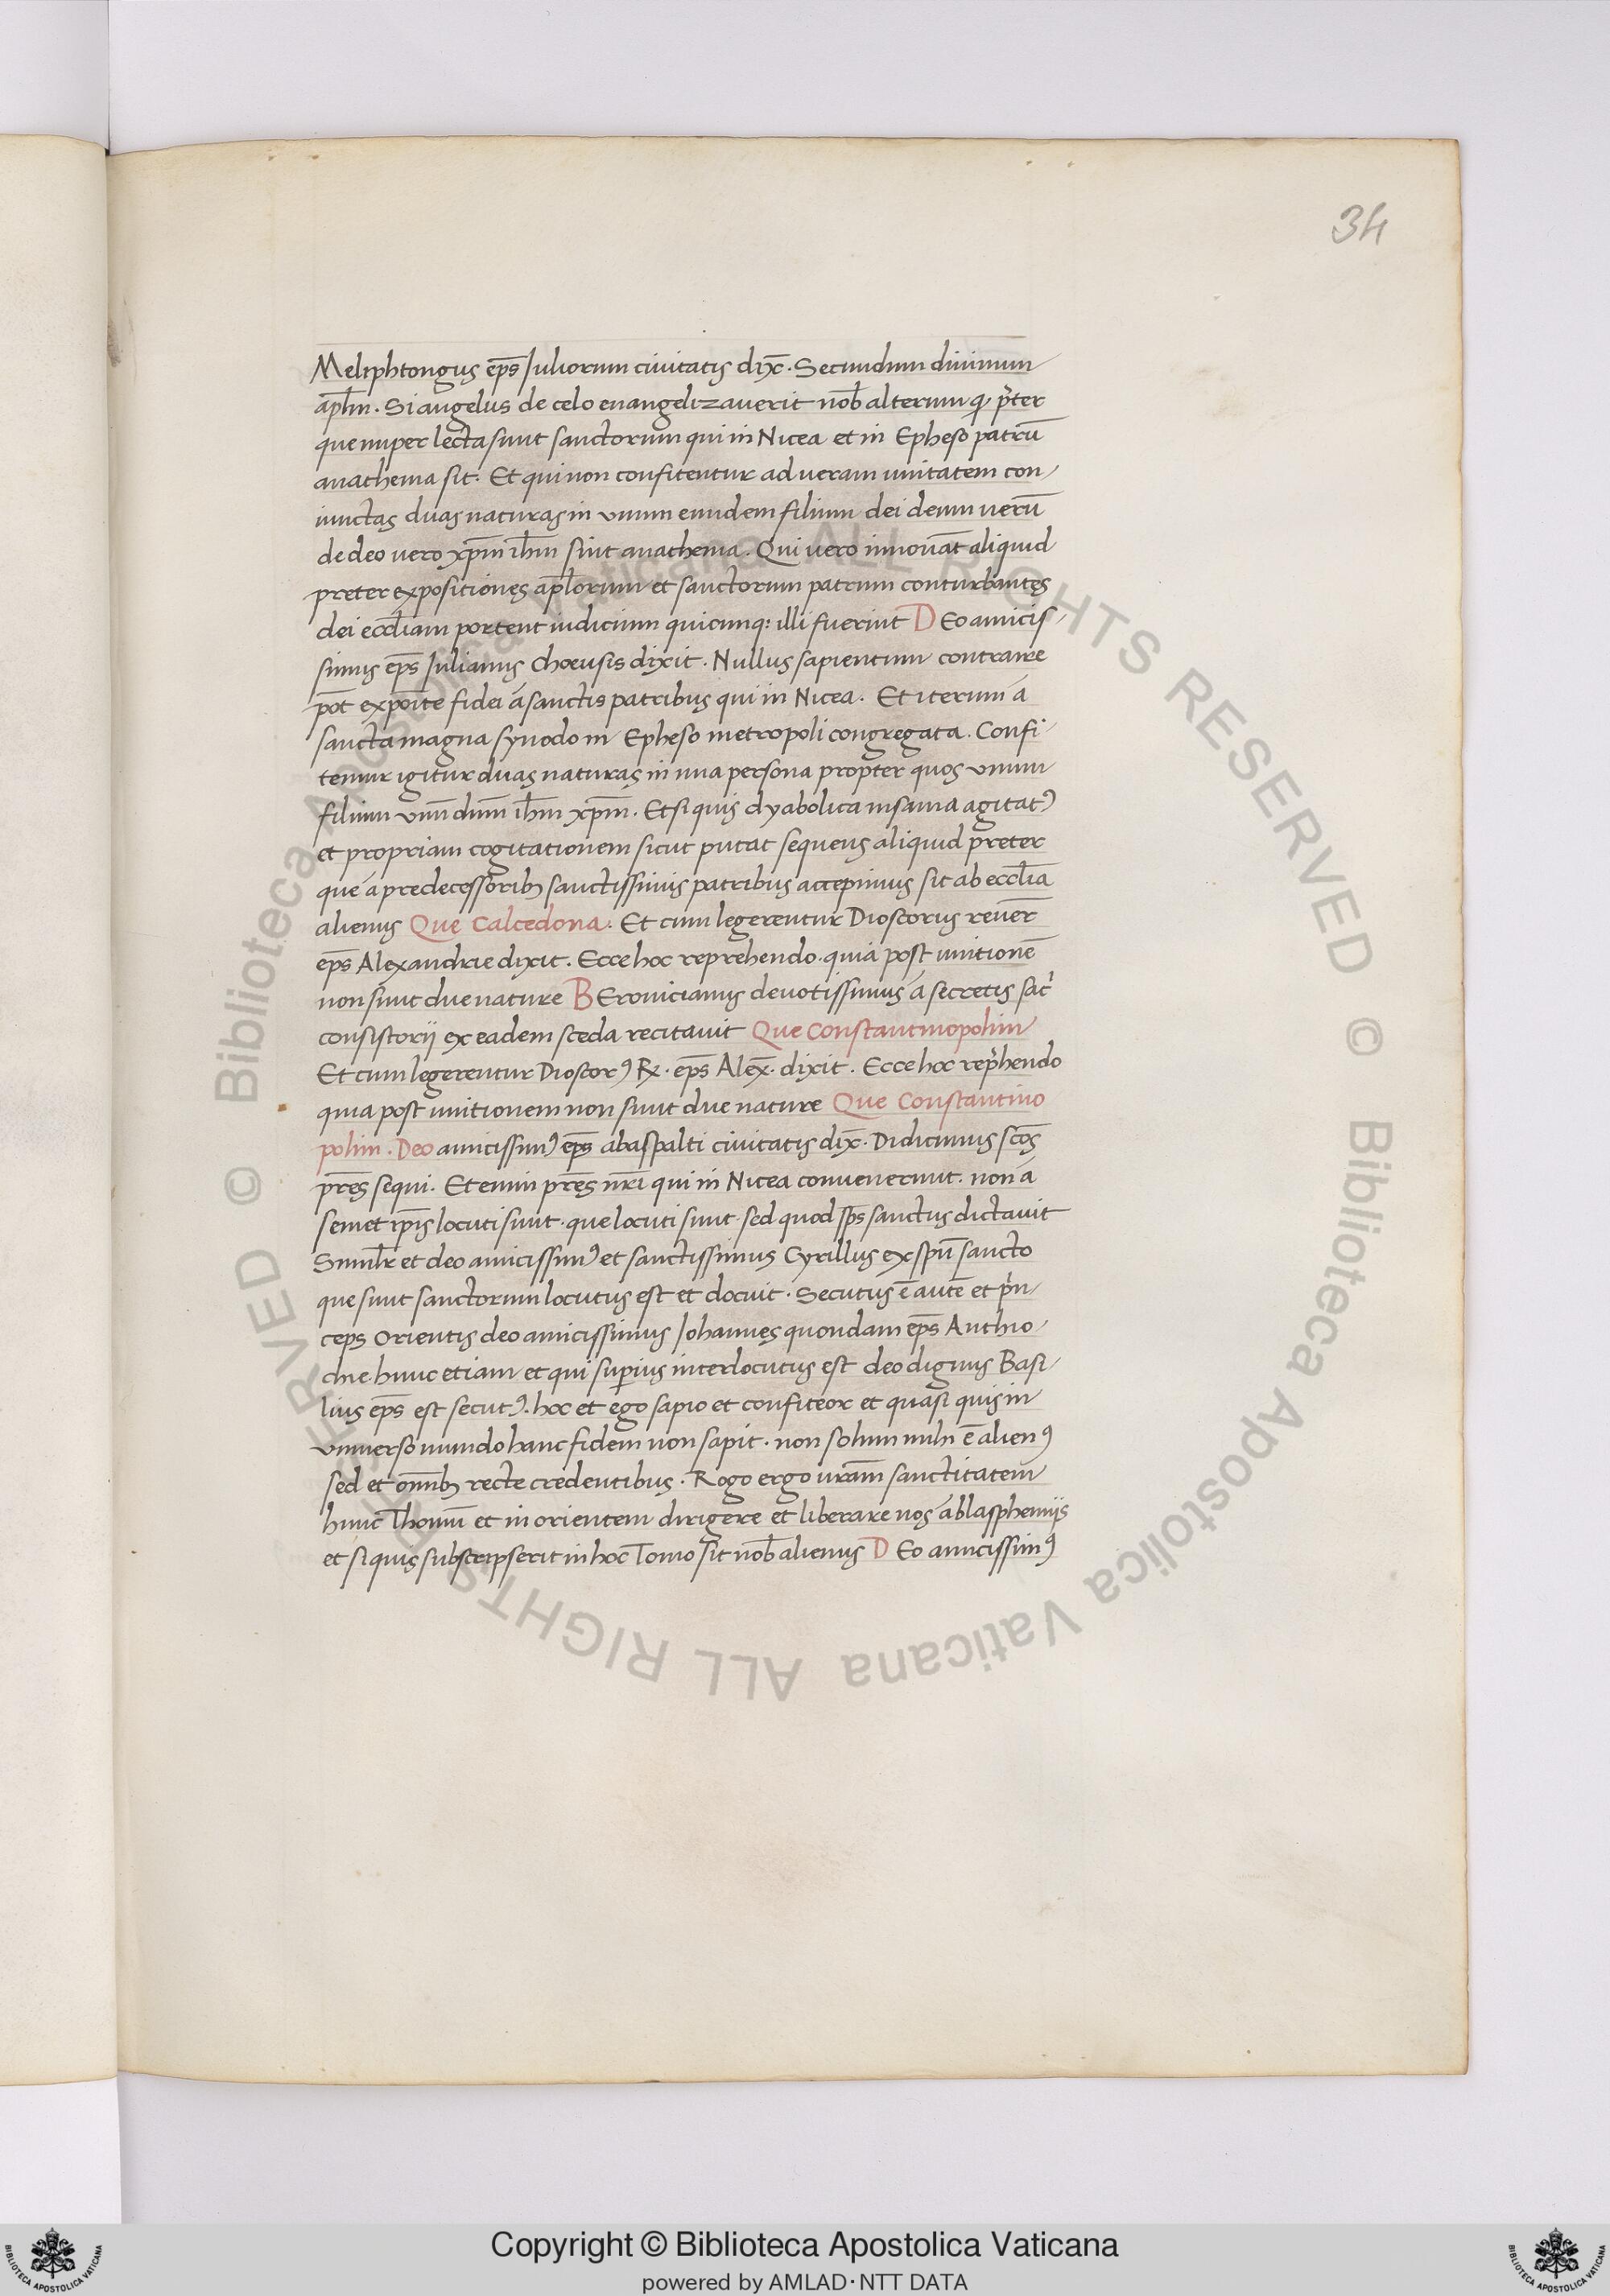 34
Meliphtongus ep̄s Juliorum ciuitatis dix̄. Secundum diuinum
apl̄m. Si angelus de celo euangelizauerit nob̄ alterum q, p̄ter
que nuper lecta sunt sanctorum qui in Nicea et in Epheso patrū
anathema sit. Et qui non confitentur ad ueram unitatem con
iunctas duas naturas in vnum eundem filium dei deum uerū
de deo uero xp̄m ih̄m sint anathema. Qui uero innouāt aliquid
preter expositiones apl̄orum et sanctorum patrum conturbantes
dei eccl̄iam portent iudicium quicunq: illi fuerint D Eo amicis
simus ep̄s Julianus choensis dixit. Nullus sapientum contraire
pōt expōite fidei á sanctis patribus qui in Nicea. Et iterum á
sancta magna synodo in Epheso metropoli congregata. Confi
temur igitur duas naturas in una persona propter quos vnum
filium vnū dn̄m ih̄m xp̄m. Et si quis dyabolica insania agitat᾿
et propriam cogitationem sicut putat sequens aliquid preter
que á predecessorib; sanctissimis patribus accepimus sit ab eccl̄ia
alienus Que Calcedona. Et cum legerentur Dioscorus reuer̄
ep̄s Alexandrie dixit. Ecce hoc reprehendo. quia post unitionē
non sunt due nature B Eronicianus deuotissimus á secretis sac̄
consistorij ex eadem sceda recitauit Que Constantinopolim
Et cum legerentur Dioscorꝰ R. ep̄s Alex̄. dixit. Ecce hoc rep̄hendo
quia post unitionem non sunt due nature Que Constantino
polim. Deo amicissimꝰ ep̄s abaspalti ciuitatis dix̄. Didicimus sc̄os
pr̄es sequi. Et enim pr̄es nr̄i qui in Nicea conuenerunt. non á
semet ip̄is locuti sunt. que locuti sunt. sed quod sp̄s sanctus dictauit
Simil̄r et deo amicissimꝰ et sanctissimus Cyrillus ex spū sancto
que sunt sanctorum locutus est et docuit. Secutus ē autē et pri̇n
ceps Orientis deo amicissimus Johannes quondam ep̄s Anthio
chie. hunc etiam et qui superius interlocutus est deo dignus Basi
lius ep̄s est secutꝰ. hoc et ego sapio et confiteor et quasi quis in
vniuerso mundo hanc fidem non sapit. non solum mihi ē alienꝰ
sed et om̄ib; recte credentibus. Rogo ergo ur̄am sanctitatem
hunc Thomū et in orientem dirigere et liberare nos á blasphemijs
et si quis subscripserit in hoc Tomo sit nob̄ alienus D Eo amicissimꝰ
© Biblioteca Apostolica Vaticana ALL RIGHTS RESERVED
© Biblioteca Apostolica Vaticana ALL RIGHTS RESERVED
Copyright © Biblioteca Apostolica Vaticana
powered by AMLAD·NTT DATA
BIBLIOTECA APOSTOLICA VATICANA
BIBLIOTECA APOSTOLICA VATICANA